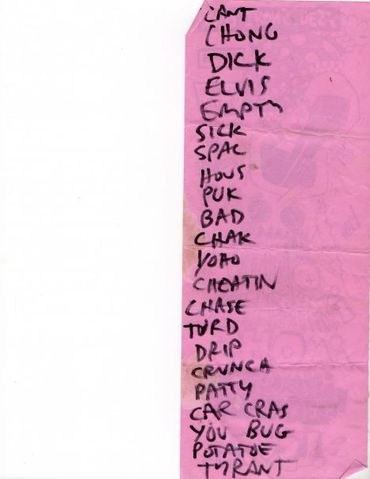 CANT
CHONG
DICK
ELVIS
EMPTY
SICK
SPAC
HOUS
PUK
BAD
CHAK
YOHO
CHEATIN
CHASE
TURD
DRIP
CRUNCA
PATTY
CAR CRAS
YOU BUG
POTATOE
TYRANT